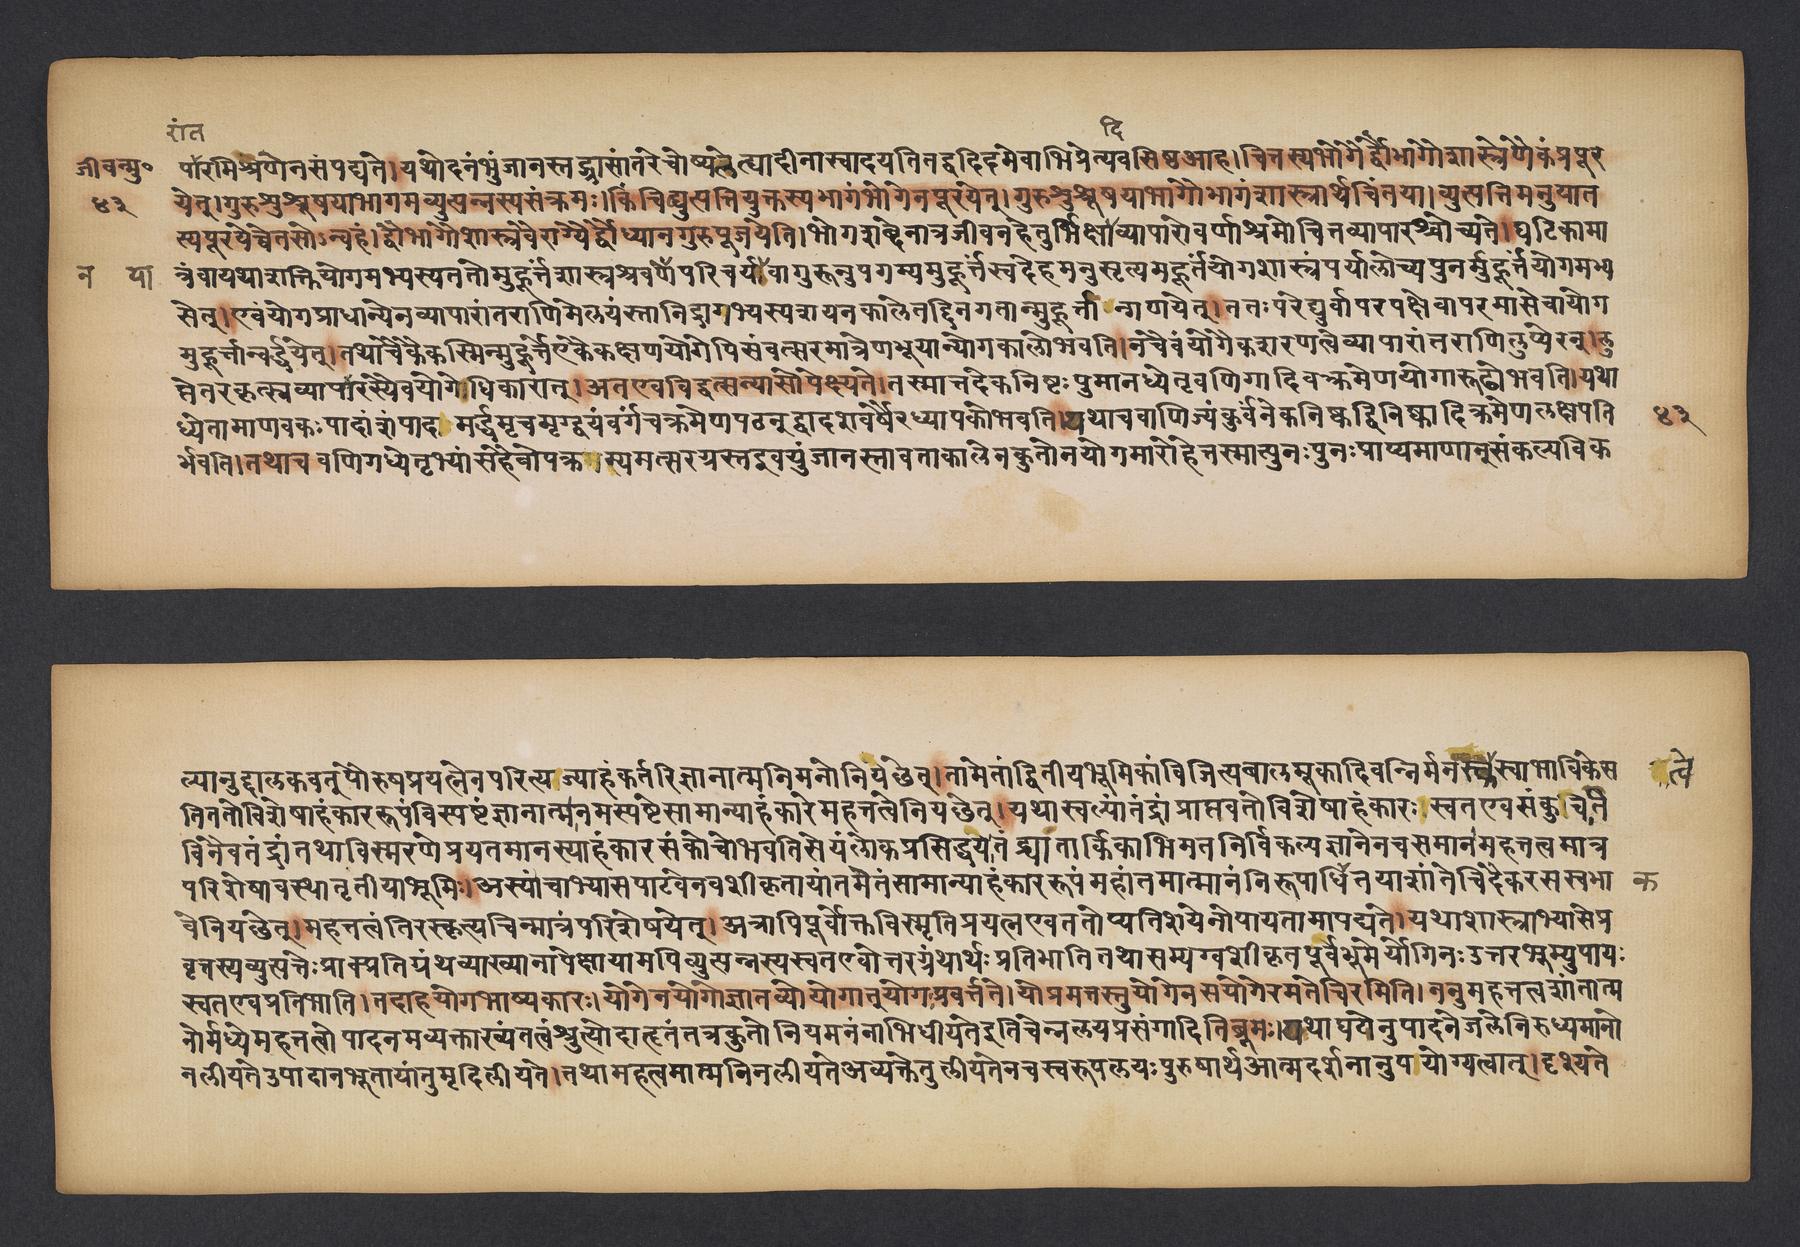 रांत
दि
जीवन्मु॰
४३
पारमिश्रणेन संपद्यते। यथोदनंभुंजानस्तद्ग्रासांतरेचोष्यलेत्यादीनास्वादयति तद्वदिदमेवाभिप्रेत्यवसिष्ठआह। चित्तस्यभोगैर्द्वौभागौशास्त्रेणैकंप्रपूर
येत्। गुरुशुश्रूषयाभागमव्युत्पन्नस्यसंक्रमः। किंचिद्व्युत्पत्तियुक्तस्यभागंभोगेनपूरयेत्। गुरुशुश्रूषयाभागोभागंशास्त्रार्थचिंतया। व्युत्पत्तिमनुयात
स्यपूरयेच्चेतसोऽन्वहं। द्वौभागौशास्त्रवैराग्यैर्द्वौध्यानगुरुपूजयेति। भोगशब्देनात्रजीवनहेतुर्भिक्षाव्यापारोवर्णाश्रमोचितव्यापारश्चोच्यते। घटिकामा
न या
त्रंवायथाशक्तियोगमभ्यस्यततोमुहूर्त्तंशास्त्रश्रवणेपरिचर्यांवागुरूनुपगम्यमुहूर्त्तंस्वदेहमनुसृत्यमुहूर्तंयोगशास्त्रंपर्यालोच्यपुनर्मुहूर्त्तंयोगमभ्य
सेत्। एवंयोगप्राधान्येनव्यापारांतराणिमेलयंस्तानिद्रागभ्यस्यशयनकालेतद्दिनगतान्मुहूर्त्तान्गणयेत्। ततःपरेद्युर्वापरपक्षेवापरमासेवायोग
मुहूर्त्तान्वर्द्धयेत्। तथाचैकैकस्मिन्मुहूर्त्तेएकैकक्षणयोगेपिसंवत्सरमात्रेणभूयान्योगकालोभवति। नचैवंयोगैकशरणत्वेव्यापारांतराणिलुप्येरन्। लु
प्तेतरकृत्स्नव्यापारस्यैवयोगेधिकारात्। अतएवविद्वत्सन्यासोपेक्ष्यते। तस्मात्तदेकनिष्ठःपुमानध्येतृवणिगादिवत्क्रमेणयोगारूढोभवति। यथा
ध्येतामाणवकःपादांशंपादमर्द्धमृचमृग्द्वयंवर्गंचक्रमेणपठन्द्वादशवर्षैरध्यापकोभवति। यथाचवाणिज्यंकुर्वन्नेकनिष्कद्विनिष्कादिक्रमेणलक्षपति
४३
र्भवति। तथाचवणिगध्येतृभ्यांसहैवोपक्रम्यमत्सरयस्तद्वद्युंजानस्तावताकालेनकुतोनयोगमारोहेत्तस्मात्पुनःपुनःप्राप्यमाणान्संकल्पविक
ल्पानुद्दालकवत्पौरुषप्रयत्नेनपरित्यज्याहंकर्तरिज्ञानात्मनिमनोनियछेत्। तामेतांद्वितीयभूमिकांविजित्यबालमूकादिवन्निर्मनस्त्वेस्वाभाविकेस
त्वे
तिततोविशेषाहंकाररूपंविस्पष्टंज्ञानात्मानमस्पष्टेसामान्याहंकारेमहत्तत्वेनियछेत्। यथास्वल्पांतंद्रांप्राप्तवतोविशेषाहंकारः स्वतएवसंकुचति
विनैवतंद्रांतथाविस्मरणेप्रयतमानस्याहंकारसंकोचोभवतिसेयंलोकप्रसिद्धयेतंद्र्यातार्किकाभिमतनिर्विकल्पज्ञानेनचसमानमहत्तत्वमात्र
परिशेषावस्थातृतीयाभूमिः। अस्यांचाभ्यासपाटवेनवशीकृतायांतमेतंसामान्याहंकाररूपंमहांतमात्मानंनिरूपाधितयाशांतेचिदेकरसस्वभा
क
वेनियछेत्। महत्तत्वंतिरस्कृत्यचिन्मात्रंपरिशेषयेत्। अत्रापिपूर्वोक्तविस्मृतिप्रयत्नएवततोप्यतिशयेनोपायतामापद्यते। यथाशास्त्राभ्यासेप्र
वृत्तस्यव्युत्पत्तेःप्राक्प्रतिग्रंथव्याख्यानापेक्षायामपिव्युत्पन्नस्यस्वतएवोत्तरग्रंथार्थःप्रतिभातितथासम्यग्वशीकृतपूर्वभूमेर्योगिनःउत्तरभूम्युपायः
स्वतएवप्रतिभाति। तदाहयोगभाष्यकारः। योगेनयोगोज्ञातव्योयोगात्तुयोगःप्रवर्त्तते। योप्रमत्तस्तुयोगेनसयोगेरमतेचिरमिति। ननुमहत्तत्वशांतात्म
नोर्मध्येमहत्तत्वोपादनमव्यक्ताख्यंतत्वंश्रुत्योदाहृतंतत्रकुतोनियमनंनाभिधीयतेइतिचेन्नलयप्रसंगादितिब्रूमः। यथाघटोनुपादानेजलेनिरुध्यमानो
नलीयतेउपादानभूतायांतुमृदिलीयते। तथामहत्वमात्मनिनलीयतेअव्यक्तेतुलीयतेनचस्वरूपलयःपुरुषार्थआत्मदर्शनानुपयोग्यत्वात्। दृश्यते